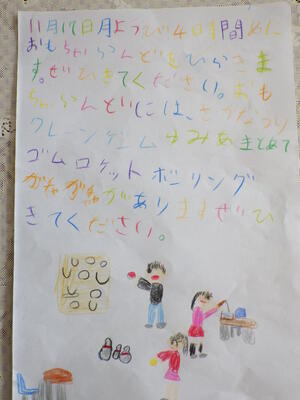 11月17日月ようび4日時間めに
おもちゃらんどをひらきま
す。ぜひきてください。おも
ちゃらんどには、さかなつり
クレーンゲーム ゆみあ まとあて
ゴムロケット ボーリング
がちゃがちゃがありますぜひ
きてください。